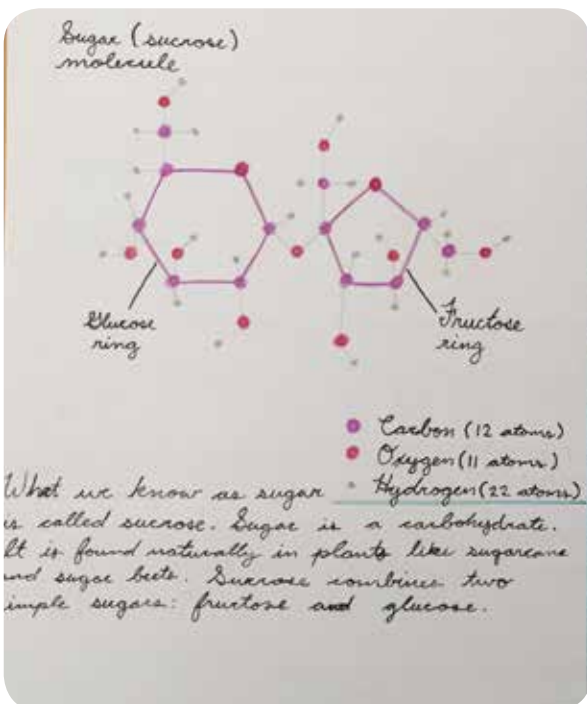 Sugar (sucrose)
molecule
Glucose
ring
Fructose
ring
Carbon (12 atoms)
Oxygen (11 atoms)
Hydrogen (22 atoms)
What we know as sugar
is called sucrose. Sugar is a carbohydrate.
It is found naturally in plants like sugarcane
and sugar beets. Sucrose combines two
simple sugars: fructose and glucose.